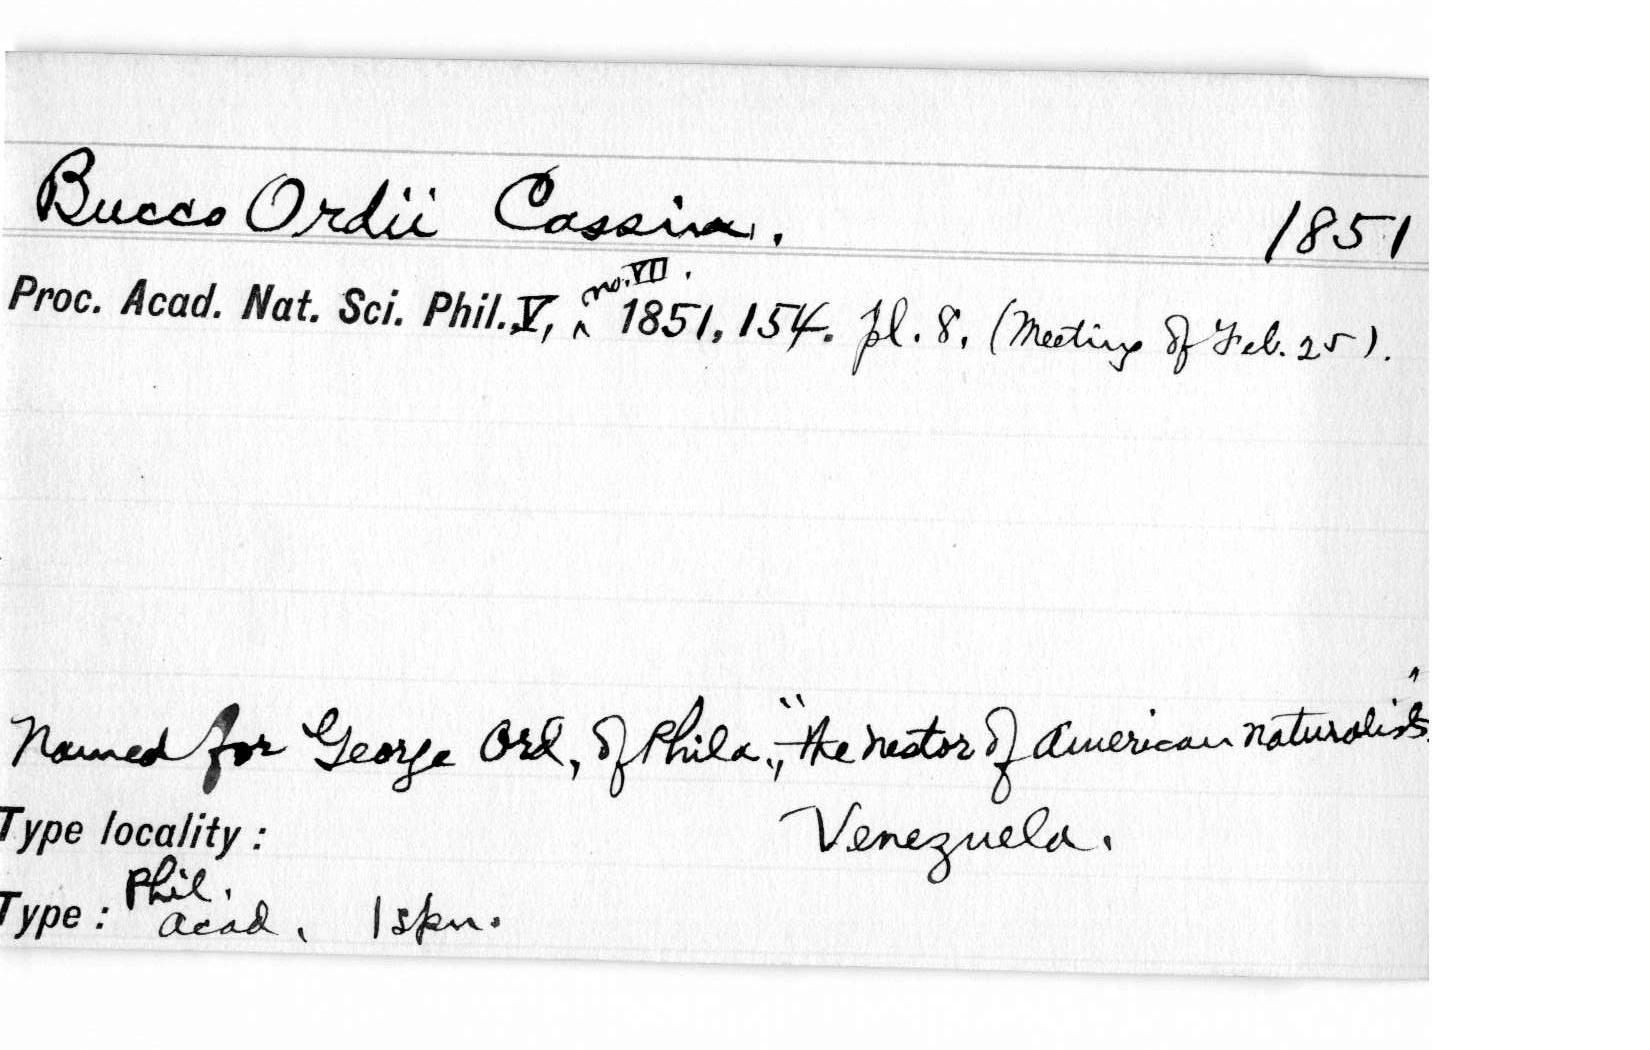 Bucco Ordii Cassin. 1851
no. VII.
Proc. Acad. Nat. Sci. Phil. V, ^ 1851, 154. pl. 8. (Meeting of Feb. 25).
Named for George Ord, of Phila., "the nestor of American naturalists."
Type locality: Venezuela.
Phil.
Type: Acad. 1 spn.